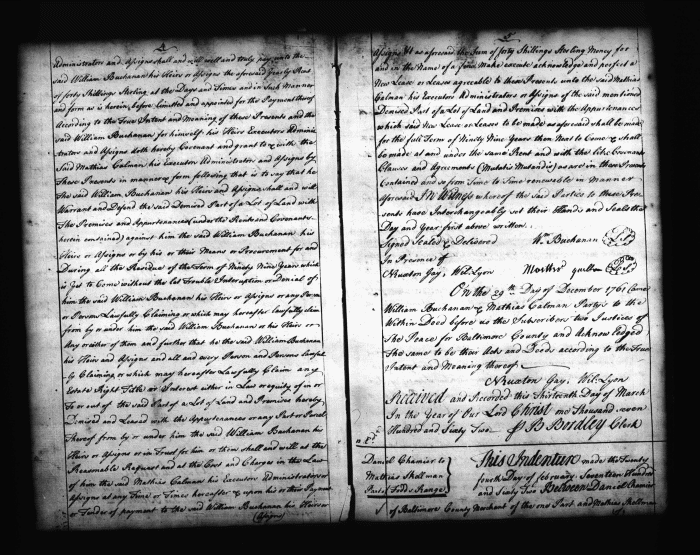 Administrators and Assigns shall and will well and truly pay unto the
said William Buchanan his Heirs or Assigns the aforesaid yearly Rent
of forty Shillings Sterling at the Days and Times and in Such Manner
and form as is herein before limitted and appointed for the Payment thereof
According to the True Intent and Meaning of these Presents and the
said William Buchanan for himself his Heirs Executors Adminis
trators and Assigns doth hereby Covenant and grant to & with the
Said Mathias Calman his Executors Administrators and Assigns by
These Presents in manner & form following that is to say that he
The said William Buchanan his Heirs and Assigns shall and will
Warrant and Defend the said Demised Part of a Lot of Land with
The Premises and Appurtenances (under the Rents and Covenants
herein contained) against him the said William Buchanan his
Heirs or Assigns or by his or their Means or Procurement for and
During all the Residue of the Term of Ninety Nine Years which
is Yet to Come without the Let Trouble Interruption or Denial of
him the said William Buchanan his Heirs or Assigns or any Person
or Persons Lawfully Claiming or which may hereafter lawfully claim
from by or under him the said William Buchanan or his Heirs or
Any or either of them and further that he the said William Buchanan
his Heirs and Assigns and all and every Person and Persons lawful
ly Claiming or which may hereafter Lawfully Claim any
Estate Right Title or Interest either in Law or equity of in or
To or out of the said Part of a Lot of Land and Premises hereby
Demised and Leased with the Appurtenances or any Part or Parcel
Thereof from by or under him the said William Buchanan his
Heirs or Assigns or in Trust for him or them shall and will at the
Reasonable Request and at the Cost and Charges in the Law
of him the said Mathias Calman his Executors Administrators
Assigns at any Time or Times hereafter & upon his or their Payment
or Tender of payment to the said William Buchanan his Heirs or
(Assigns)
Assigns as aforesaid the Sum of forty Shillings Sterling Money for
and in the Name of a fine Make execute acknowledge and perfect a
New Lease or Leases agreeable to these Presents unto the said Mathias
Calman his Executors Administrators or Assigns of the said mentioned
Demised Part of a Lot of Land and Premises with the Appurtenances
which said New Lease or Leases to be made as aforesaid shall be made
for the full Term of Ninety Nine Years then Next to Come & shall
be made at and under the same Rent and with the like Covenants
Clauses and Agreements (Mutatis Mutandis) as are in these Presents
Contained and so from Time to Time renewable in Manner
aforesaid In Witness whereof the Said Parties to these Pre
sents have Interchangeably set their Hands and Seals the
Day and Year first above written
Signed Sealed & Delivered Wm Buchanan
In Presence of
Nicuxton Gay, Wil: Lyon
On the 29th Day of December 1761 Came
William Buchanan & Mathias Calman Partys to the
Within Deed before us the Subscribers two Justices of
The Peace for Baltimore County and Acknowledged
The same to be their Acts and Deeds according to the True
Intent and Meaning thereof
Nicuxton Gay, Wil: Lyon
Received and Recorded this Thirteenth Day of March
In the Year of Our Lord Christ one Thousand seven
Hundred and Sixty Two B Bordley Clerk
Daniel Chamier to
Mathias Shollman
Part of Todds Range
This Indenture made the Twenty
fourth Day of february Seventeen Hundred
and Sixty Two Between Daniel Chamier
of Baltimore County Merchant of the one Part and Mathias Shollman